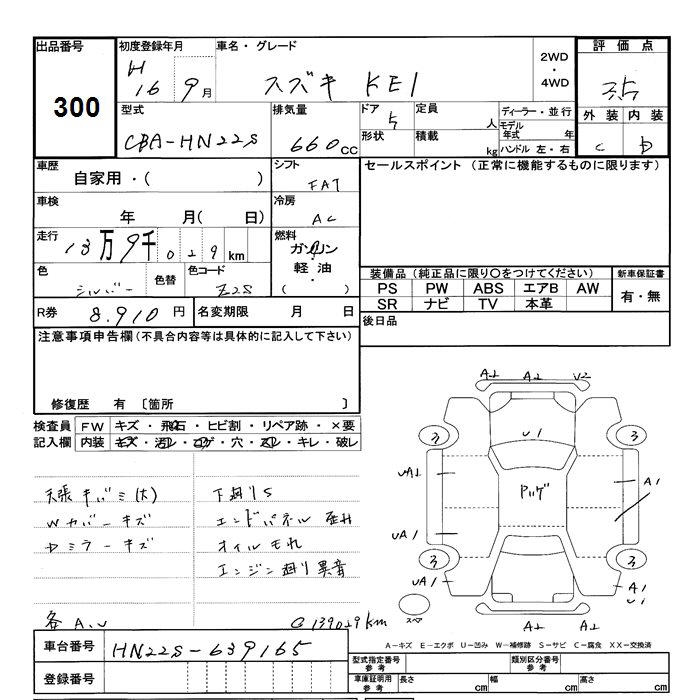 出品番号
300
初度登録年月
H 16 9月
車名・グレード
スズキ KEI
2WD
・
4WD
評価点
3.5
外装 内装
C D
型式
CBA-HN22S
排気量
660cc
ドア
5
形状
定員
人
積載
kg
ディーラー・並行
モデル年式 年
ハンドル 左・右
車歴
自家用・( )
シフト
FAT
セールスポイント (正常に機能するものに限ります)
車検
年 月( 日)
冷房
AC
走行
13万9千029km
燃料
ガソリン
・
軽油
( )
色
シルバー
色替
色コード
Z2S
装備品 (純正品に限り○をつけてください)
新車保証書
PS PW ABS エアB AW
SR ナビ TV 本革
有・無
R券
8.910円
名変期限 月 日
後日品
注意事項申告欄(不具合内容等は具体的に記入して下さい)
修復歴 有 〔箇所 〕
検査員記入欄
FW キズ・飛石・ヒビ割・リペア跡・×要
内装 キズ・汚レ・コゲ・穴・スレ・キレ・破レ
天張キバミ(大)
Wカバーキズ
ヤミラーキズ
各A.U
下廻りS
エンドパネル歪ミ
オイルモレ
エンジン廻り異音
@139029km
A2 A2 V2
3 3
U1
UA2
Pハゲ
A1
UA1
3 3
UA1
A1
U1
スペア
A2 A2
A-キズ E-エクボ U-凹み W-補修跡 S-サビ C-腐食 XX-交換済
車台番号
HN22S-639165
登録番号
型式指定番号 参考
類別区分番号 参考
車庫証明用 参考
長さ cm
幅 cm
高さ cm